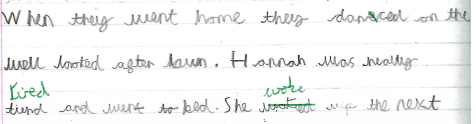 When they went home they danced on the
well looted after lawn. Hannah was really
tired woke
tierd and went to bed. She waked up the next